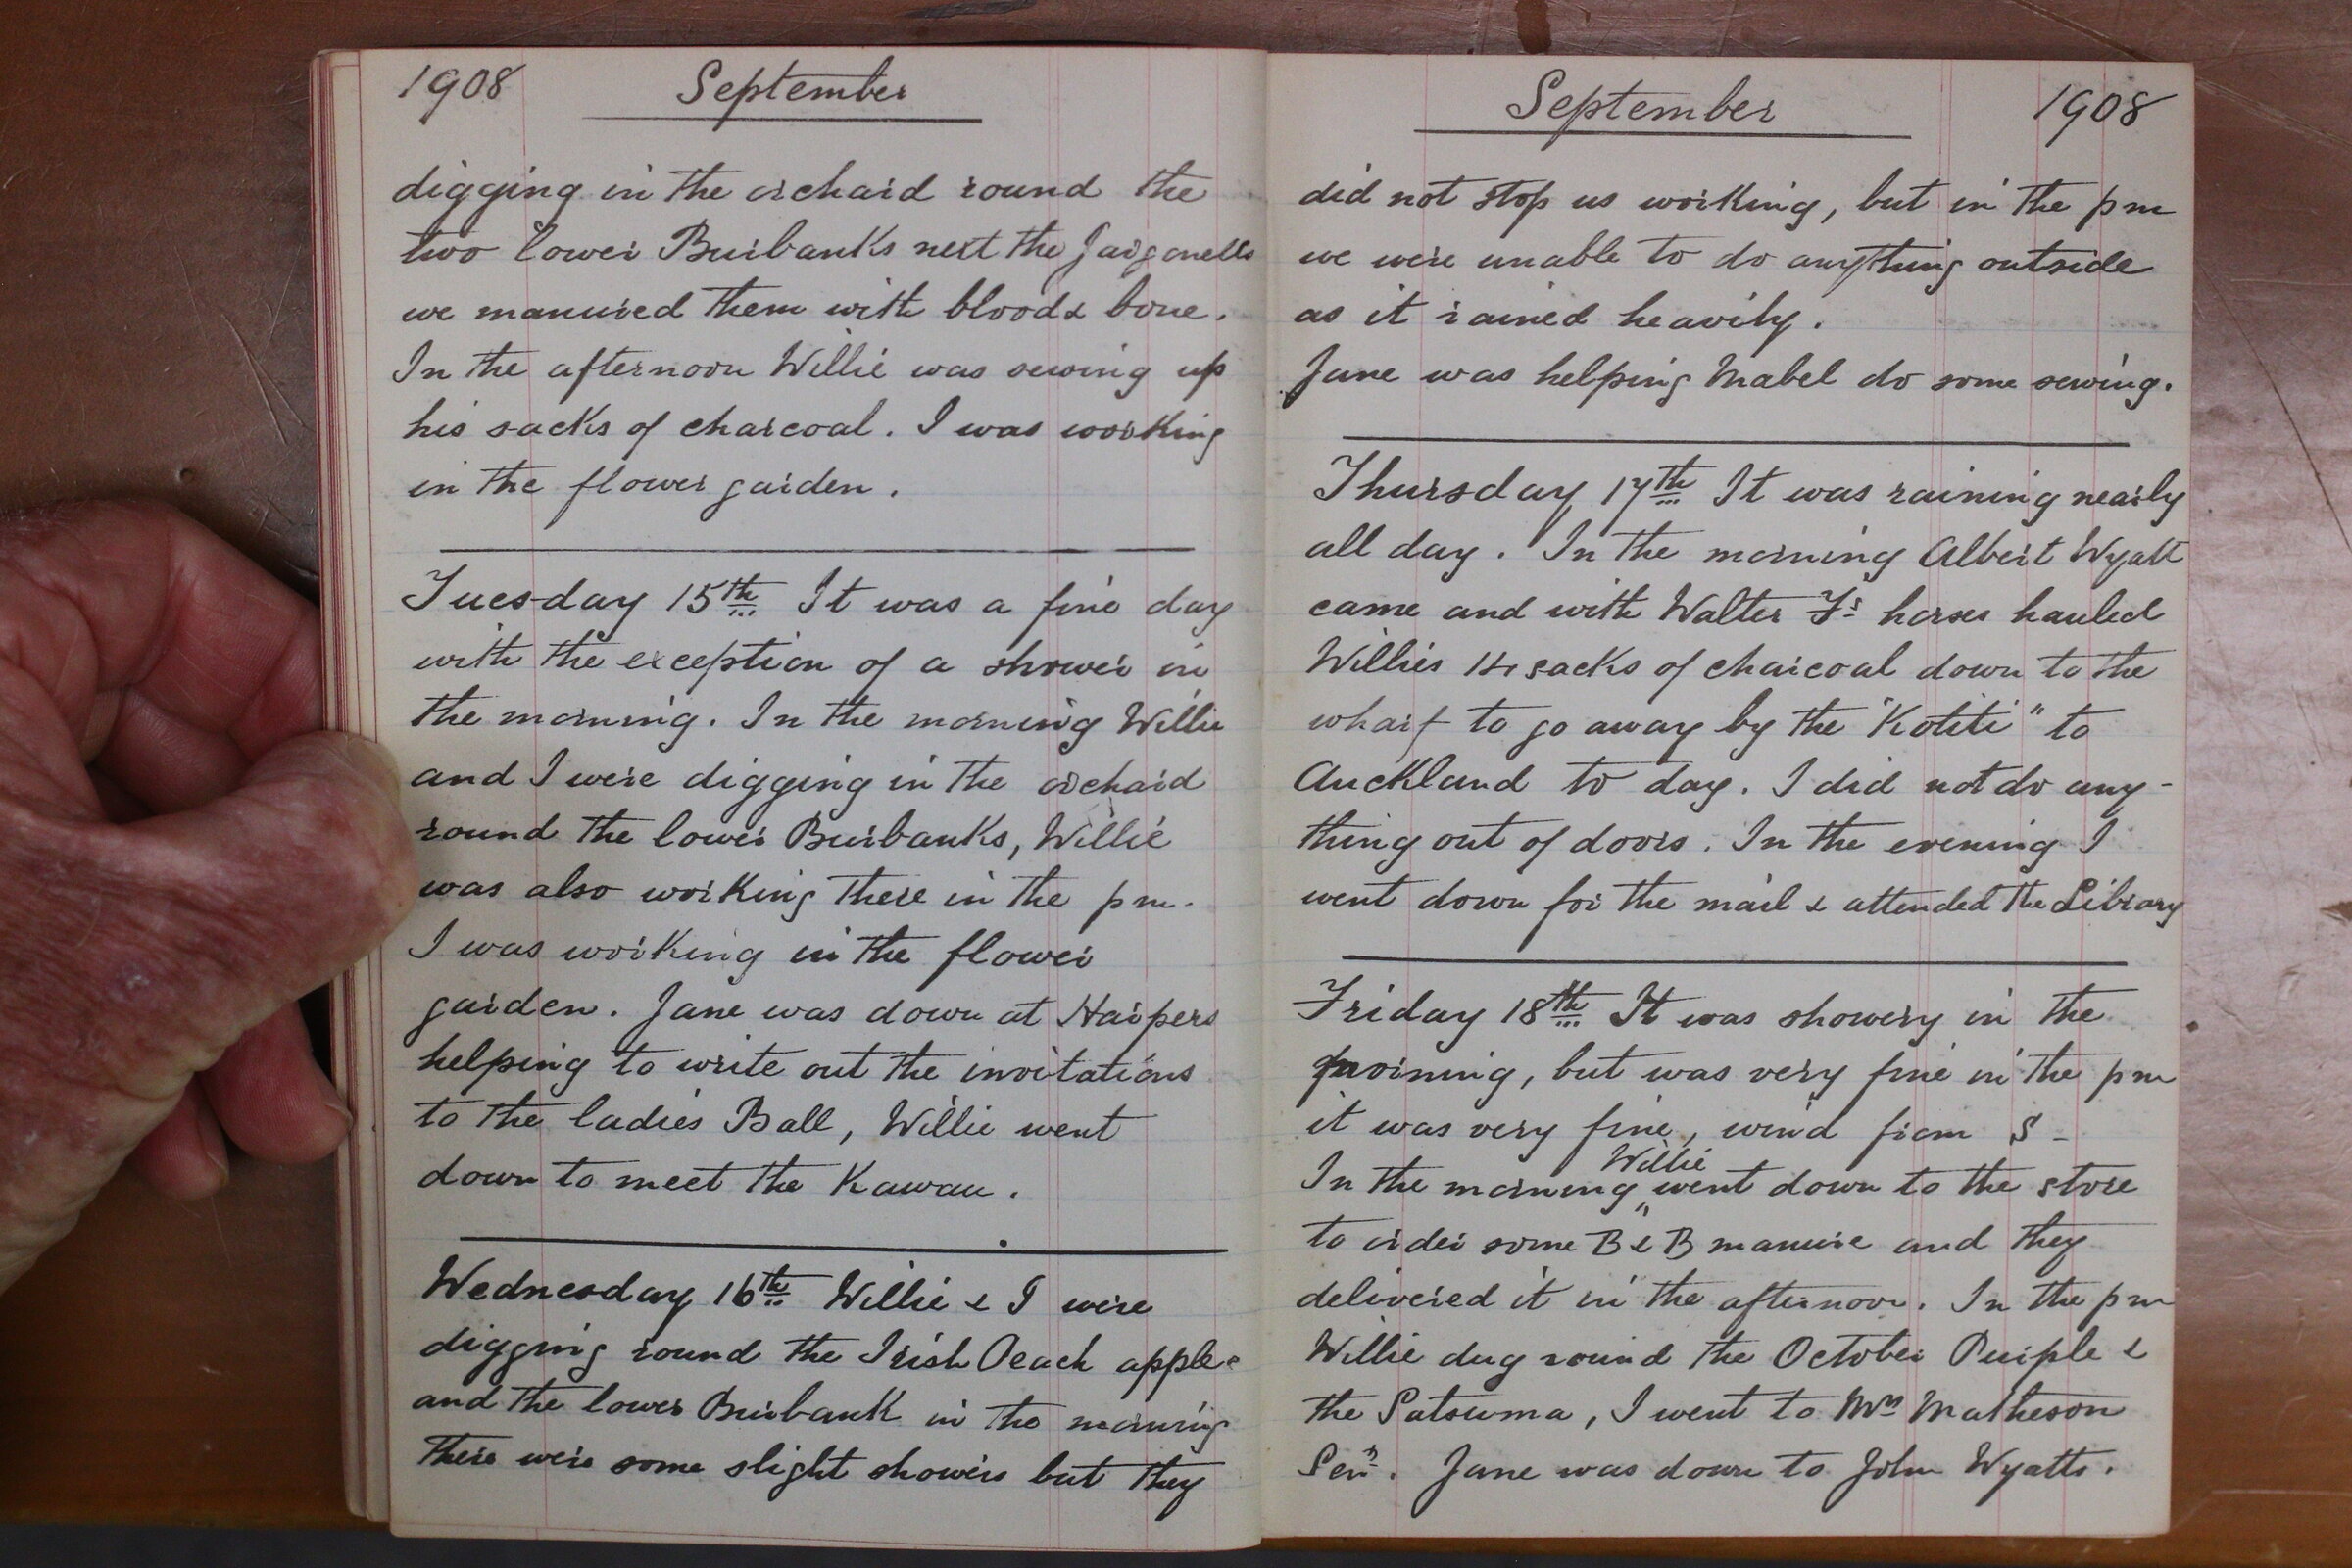 1908 September
digging in the orchard round the
two lower Burbanks next the Jargonells
we manured them with blood & bone.
In the afternoon Willie was sewing up
his sacks of charcoal. I was working
in the flower garden.
Tuesday 15th It was a fine day
with the exception of a shower in
the morning. In the morning Willie
and I were digging in the orchard
round the lower Burbanks, Willie
was also working there in the pm.
I was working in the flower
garden. Jane was down at Harpers
helping to write out the invitations
to the ladies Ball, Willie went
down to meet the Kawau.
Wednesday 16th Willie & I were
digging round the Irish Peach apples
and the lower Burbank in the morning
There were some slight showers but they
September 1908
did not stop us working, but in the pm
we were unable to do anything outside
as it rained heavily.
Jane was helping Mabel do some sewing.
Thursday 17th It was raining nearly
all day. In the morning Albert Wyatt
came and with Walter F's horses hauled
Willies 14 sacks of charcoal down to the
wharf to go away by the "Kotiti" to
Auckland to day. I did not do any-
thing out of doors. In the evening I
went down for the mail & attended the Library
Friday 18th It was showery in the
morning, but was very fine in the pm
it was very fine, wind from S -
Willie
In the morning went down to the store
to order some B & B manure and they
delivered it in the afternoon. In the pm
Willie dug round the October Purple &
the Satsuma, I went to Mrs Matheson
Senr. Jane was down to John Wyatts.